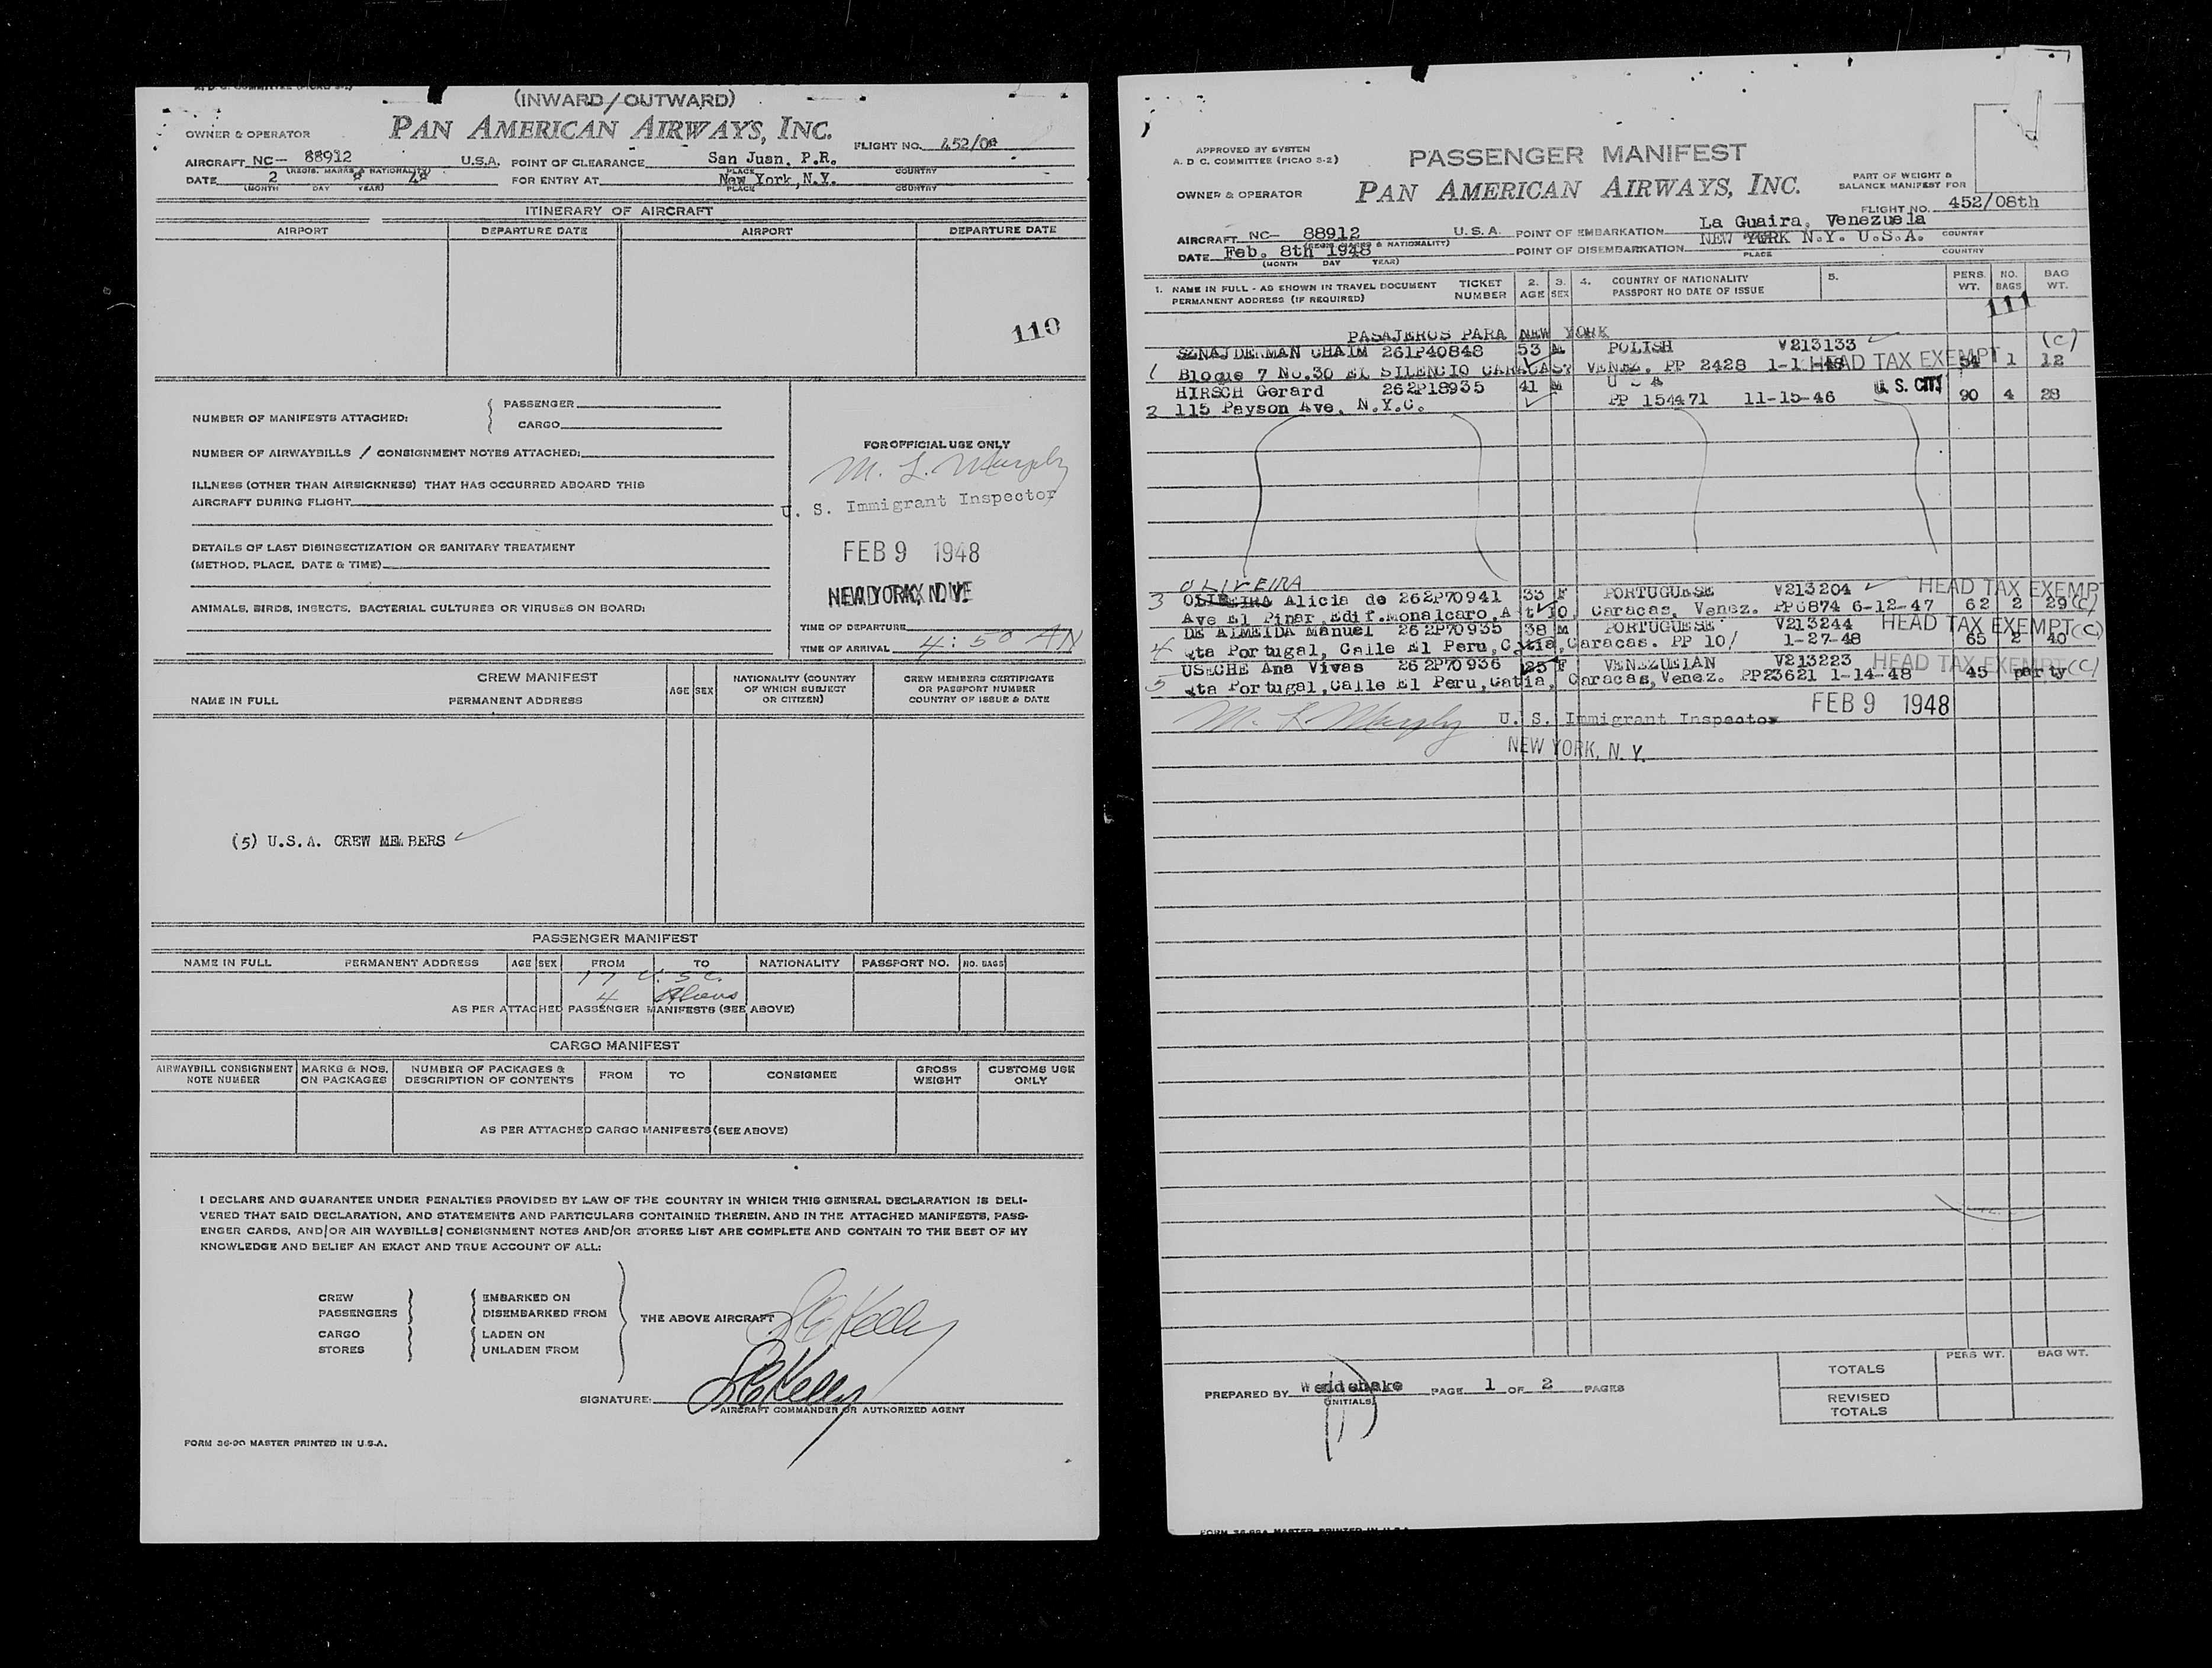 (INWARD/OUTWARD)
OWNER & OPERATOR PAN AMERICAN AIRWAYS, INC.
FLIGHT NO. 452/08
AIRCRAFT NC- 88912 U.S.A. POINT OF CLEARANCE San Juan, P.R.
(REGIS. MARKS & NATIONALITY) PLACE COUNTRY
DATE 2 8 48 FOR ENTRY AT New York, N.Y.
(MONTH DAY YEAR) PLACE COUNTRY
ITINERARY OF AIRCRAFT
AIRPORT DEPARTURE DATE AIRPORT DEPARTURE DATE
110
NUMBER OF MANIFESTS ATTACHED: PASSENGER
CARGO
NUMBER OF AIRWAYBILLS / CONSIGNMENT NOTES ATTACHED:
ILLNESS (OTHER THAN AIRSICKNESS) THAT HAS OCCURRED ABOARD THIS
AIRCRAFT DURING FLIGHT
DETAILS OF LAST DISINSECTIZATION OR SANITARY TREATMENT
(METHOD, PLACE, DATE & TIME)
ANIMALS, BIRDS, INSECTS, BACTERIAL CULTURES OR VIRUSES ON BOARD:
FOR OFFICIAL USE ONLY
M. L. Murphy
U. S. Immigrant Inspector
FEB 9 1948
NEW YORK, N. Y.
TIME OF DEPARTURE
TIME OF ARRIVAL 4:50 AM
CREW MANIFEST
NAME IN FULL PERMANENT ADDRESS AGE SEX NATIONALITY (COUNTRY OF WHICH SUBJECT OR CITIZEN) CREW MEMBERS CERTIFICATE OR PASSPORT NUMBER COUNTRY OF ISSUE & DATE
(5) U.S.A. CREW MEMBERS
PASSENGER MANIFEST
NAME IN FULL PERMANENT ADDRESS AGE SEX FROM TO NATIONALITY PASSPORT NO. NO. BAGS
17 U.S.C.
4 Aliens
AS PER ATTACHED PASSENGER MANIFESTS (SEE ABOVE)
CARGO MANIFEST
AIRWAYBILL CONSIGNMENT NOTE NUMBER MARKS & NOS. ON PACKAGES NUMBER OF PACKAGES & DESCRIPTION OF CONTENTS FROM TO CONSIGNEE GROSS WEIGHT CUSTOMS USE ONLY
AS PER ATTACHED CARGO MANIFESTS (SEE ABOVE)
I DECLARE AND GUARANTEE UNDER PENALTIES PROVIDED BY LAW OF THE COUNTRY IN WHICH THIS GENERAL DECLARATION IS DELI-
VERED THAT SAID DECLARATION, AND STATEMENTS AND PARTICULARS CONTAINED THEREIN, AND IN THE ATTACHED MANIFESTS, PASS-
ENGER CARDS, AND/OR AIR WAYBILLS/CONSIGNMENT NOTES AND/OR STORES LIST ARE COMPLETE AND CONTAIN TO THE BEST OF MY
KNOWLEDGE AND BELIEF AN EXACT AND TRUE ACCOUNT OF ALL:
CREW EMBARKED ON
PASSENGERS DISEMBARKED FROM
THE ABOVE AIRCRAFT
CARGO LADEN ON
STORES UNLADEN FROM
SIGNATURE:
AIRCRAFT COMMANDER OR AUTHORIZED AGENT
FORM 36-90 MASTER PRINTED IN U.S.A.
APPROVED BY SYSTEM
A. D C. COMMITTEE (PICAO 3-2)
PASSENGER MANIFEST
OWNER & OPERATOR PAN AMERICAN AIRWAYS, INC.
PART OF WEIGHT & BALANCE MANIFEST FOR
FLIGHT NO. 452/08th
AIRCRAFT NC- 88912 U.S.A. POINT OF EMBARKATION La Guaira, Venezuela
(REGIS MARKS & NATIONALITY) COUNTRY
DATE Feb. 8th 1948 POINT OF DISEMBARKATION NEW YORK N.Y. U.S.A.
(MONTH DAY YEAR) PLACE COUNTRY
1. NAME IN FULL - AS SHOWN IN TRAVEL DOCUMENT PERMANENT ADDRESS (IF REQUIRED) TICKET NUMBER 2. AGE 3. SEX 4. COUNTRY OF NATIONALITY PASSPORT NO DATE OF ISSUE 5. PERS. WT. NO. BAGS BAG WT.
111
PASAJEROS PARA NEW YORK
SZNAJDERMAN CHAIM 261P40848 53 M POLISH V213133 (C)
1 Bloque 7 No.30 EL SILENCIO CARACAS VENEZ. PP 2428 HEAD TAX EXEMPT 54 1 12
HIRSCH Gerard 262P18935 41 M U S A U. S. CIT
2 115 Payson Ave, N.Y.C. PP 154471 11-15-46 90 4 28
OLIVEIRA
3 Alicia de 262P70941 33 F PORTUGUESE V213204 HEAD TAX EXEMPT
Ave El Pinar, Edif. Monalcaro, Caracas, Venez. PP6874 6-12-47 62 2 29 (C)
DE ALMEIDA Manuel 262P70935 38 M PORTUGUESE V213244 HEAD TAX EXEMPT (C)
4 Qta Portugal, Calle El Peru, Catia, Caracas. PP 10/ 1-27-48 65 2 40
USECHE Ana Vivas 262P70936 25 F VENEZUELAN V213223 HEAD TAX EXEMPT (C)
5 Qta Portugal, Calle El Peru, Catia, Caracas, Venez. PP23621 1-14-48 45 party
M. L. Murphy U. S. Immigrant Inspector FEB 9 1948
NEW YORK, N. Y.
TOTALS PERS WT. BAG WT.
REVISED TOTALS
PREPARED BY PAGE 1 OF 2 PAGES
(INITIALS)